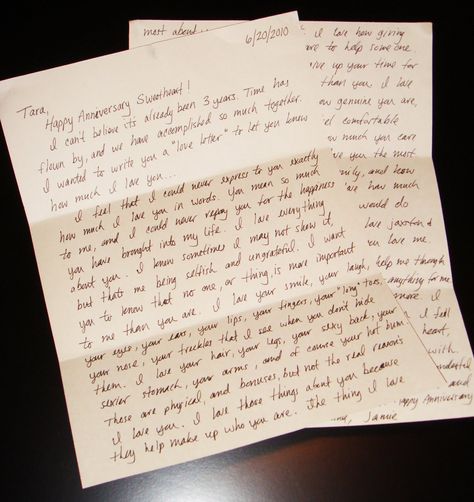 6/20/2010
Tara,
Happy Anniversary Sweetheart!
I can't believe its already been 3 years. Time has
flown by, and we have accomplished so much together.
I wanted to write you a "love letter" to let you know
how much I love you...
I feel that I could never express to you exactly
how much I love you in words. You mean so much
to me, and I could never repay you for the happiness
you have brought into my life. I love everything
about you. I know sometimes I may not show it,
but thats me being selfish and ungrateful. I want
you to know that no one, or thing, is more important
to me than you are. I love your smile, your laugh,
your eyes, your ears, your lips, your fingers, your "long" toes,
your nose, your freckles that I see when you don't hide
them. I love your hair, your legs, your sexy back, your
sexier stomach, your arms, and of course your hot bum.
These are physical, and bonuses, but not the real reasons
I love you. I love those things about you because
they help make up who you are. The thing I love
most about...
I love how giving
are to help someone
up your time for
than you. I love
genuine you are,
comfortable
much you care
you the most
and know
how much
would do
love Jaxston &
love me.
help me through
anything for me
more. I
I feel
heart,
with
and
Happy Anniversary
Jamie